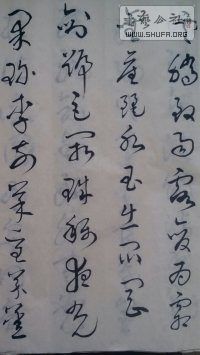 書法公社
WWW.SHUFA.ORG
雲騰致雨露結為霜
金生麗水玉出崑岡
劍號巨闕珠稱夜光
果珍李柰菜重芥薑